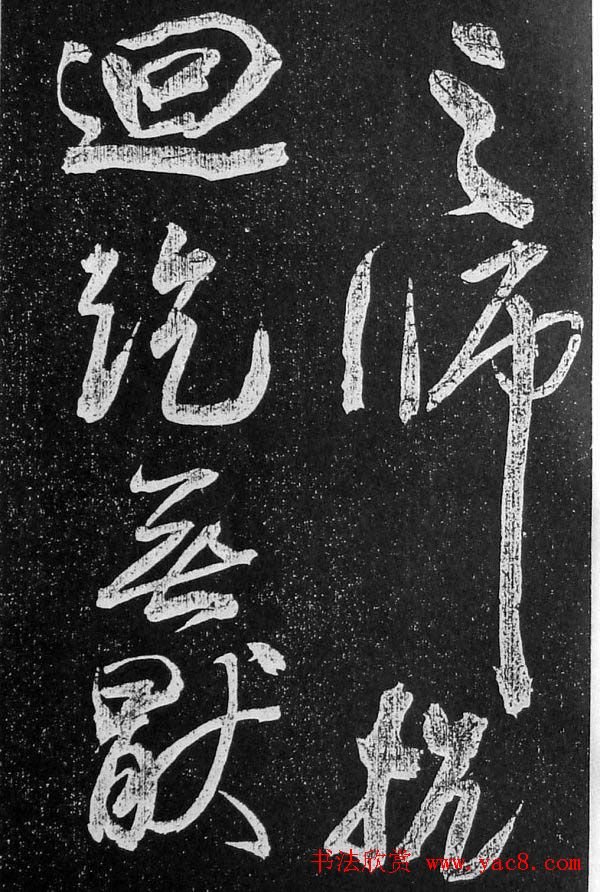 之師抗
迴紇無猒
书法欣赏 www.yac8.com